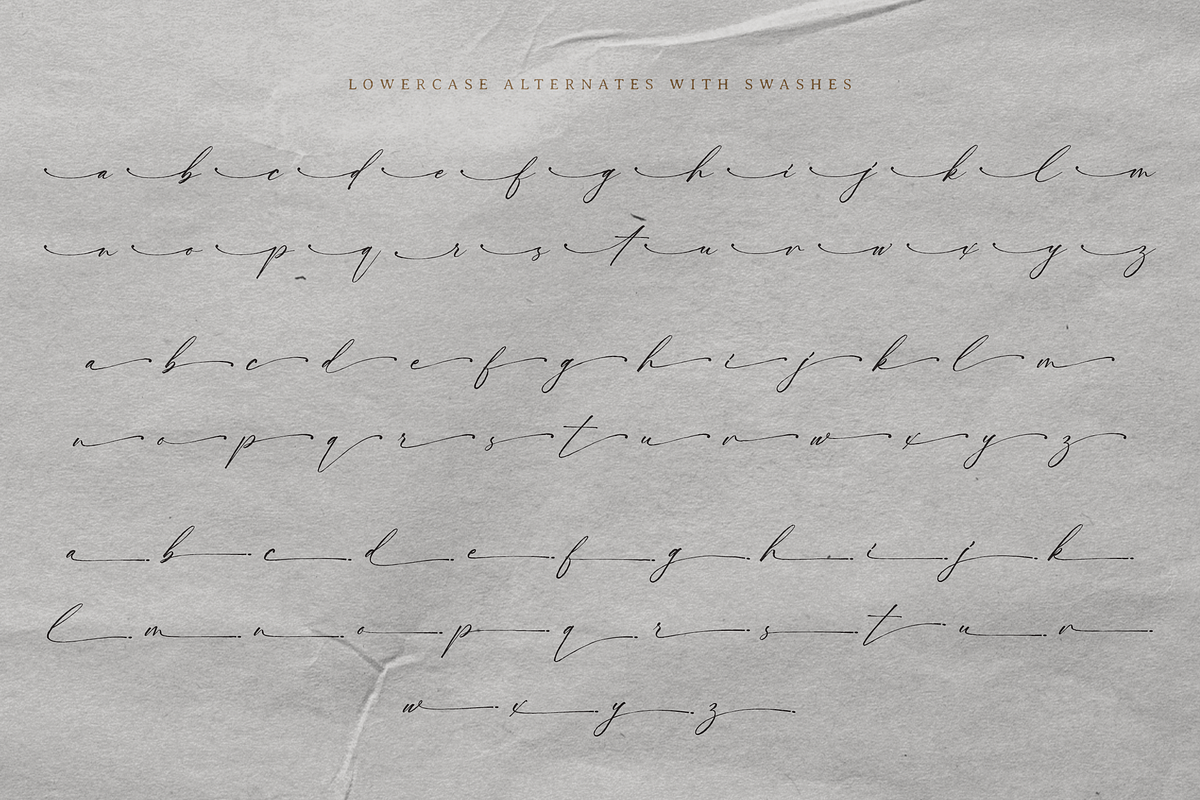 LOWERCASE ALTERNATES WITH SWASHES
a b c d e f g h i j k l m
n o p q r s t u v w x y z
a b c d e f g h i j k l m
n o p q r s t u v w x y z
a b c d e f g h i j k
l m n o p q r s t u v
w x y z